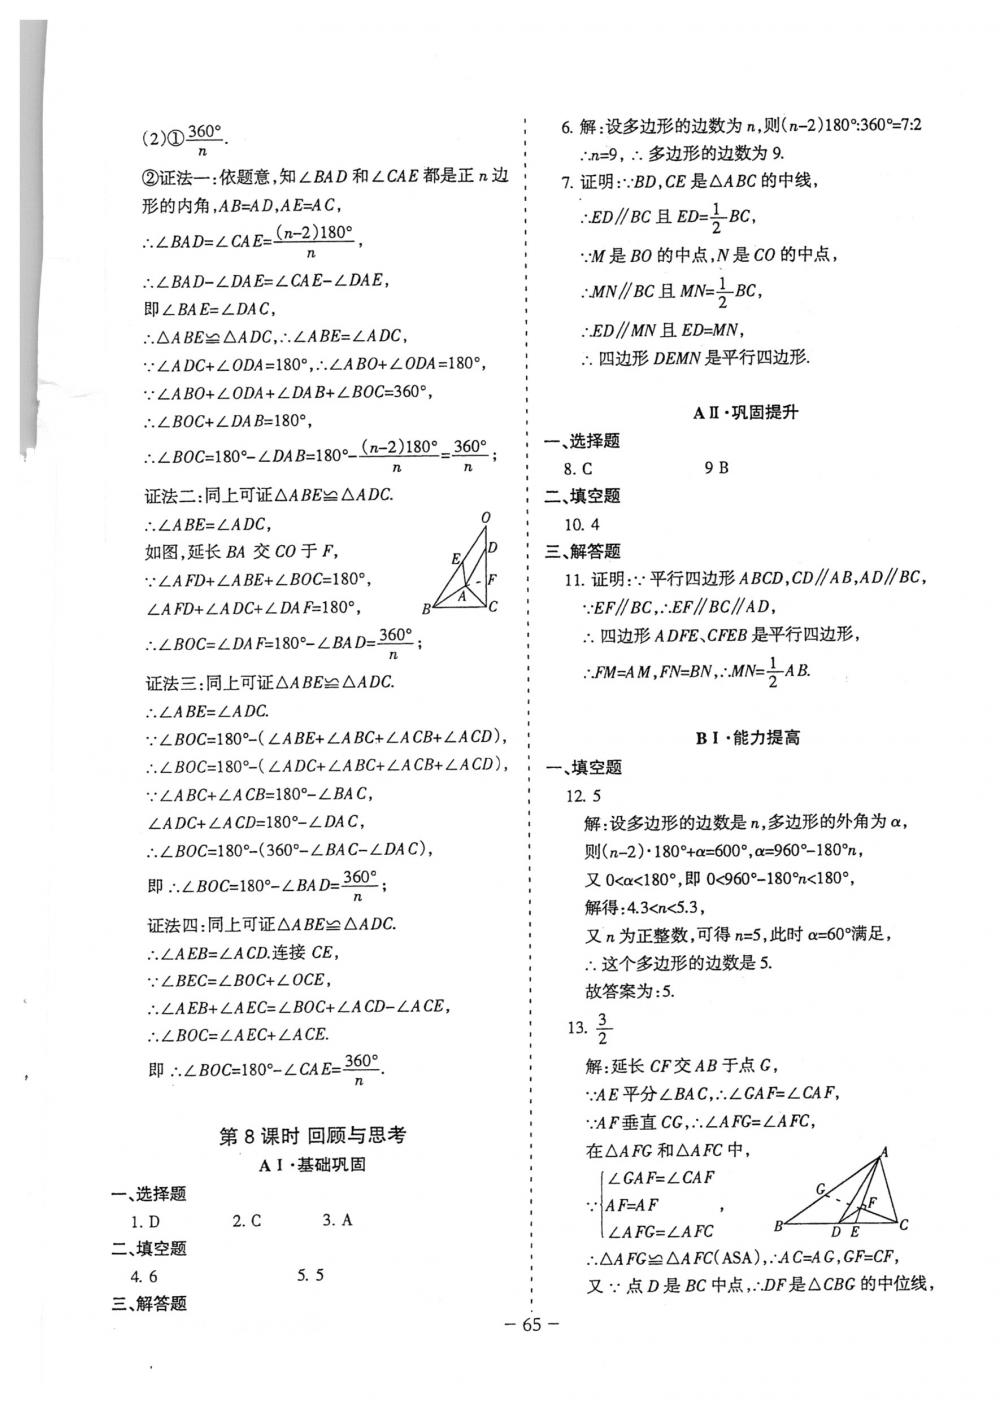 (2)①360°/n.
②证法一:依题意,知∠BAD 和∠CAE 都是正 n 边
形的内角,AB=AD,AE=AC,
∴∠BAD=∠CAE=(n-2)180°/n,
∴∠BAD-∠DAE=∠CAE-∠DAE,
即∠BAE=∠DAC,
∴△ABE≌△ADC,∴∠ABE=∠ADC,
∵∠ADC+∠ODA=180°,∴∠ABO+∠ODA=180°,
∵∠ABO+∠ODA+∠DAB+∠BOC=360°,
∴∠BOC+∠DAB=180°,
∴∠BOC=180°-∠DAB=180°-(n-2)180°/n=360°/n;
证法二:同上可证△ABE≌△ADC.
∴∠ABE=∠ADC,
如图,延长 BA 交 CO 于 F,
∵∠AFD+∠ABE+∠BOC=180°,
∠AFD+∠ADC+∠DAF=180°,
∴∠BOC=∠DAF=180°-∠BAD=360°/n;
O
E
D
F
A
B
C
证法三:同上可证△ABE≌△ADC.
∴∠ABE=∠ADC.
∵∠BOC=180°-(∠ABE+∠ABC+∠ACB+∠ACD),
∴∠BOC=180°-(∠ADC+∠ABC+∠ACB+∠ACD),
∵∠ABC+∠ACB=180°-∠BAC,
∠ADC+∠ACD=180°-∠DAC,
∴∠BOC=180°-(360°-∠BAC-∠DAC),
即 ∴∠BOC=180°-∠BAD=360°/n;
证法四:同上可证△ABE≌△ADC.
∴∠AEB=∠ACD.连接 CE,
∵∠BEC=∠BOC+∠OCE,
∴∠AEB+∠AEC=∠BOC+∠ACD-∠ACE,
∴∠BOC=∠AEC+∠ACE.
即 ∴∠BOC=180°-∠CAE=360°/n.
第 8 课时 回顾与思考
AⅠ·基础巩固
一、选择题
1. D 2. C 3. A
二、填空题
4. 6 5. 5
三、解答题
6. 解:设多边形的边数为 n,则(n-2)180°:360°=7:2
∴n=9, ∴ 多边形的边数为 9.
7. 证明:∵BD,CE 是△ABC 的中线,
∴ED∥BC 且 ED=1/2BC,
∵M 是 BO 的中点,N 是 CO 的中点,
∴MN∥BC 且 MN=1/2BC,
∴ED∥MN 且 ED=MN,
∴ 四边形 DEMN 是平行四边形.
AⅡ·巩固提升
一、选择题
8. C 9 B
二、填空题
10. 4
三、解答题
11. 证明:∵ 平行四边形 ABCD,CD∥AB,AD∥BC,
∵EF∥BC,∴EF∥BC∥AD,
∴ 四边形 ADFE、CFEB 是平行四边形,
∴FM=AM,FN=BN,∴MN=1/2AB.
BⅠ·能力提高
一、填空题
12. 5
解:设多边形的边数是 n,多边形的外角为 α,
则(n-2)·180°+α=600°,α=960°-180°n,
又 0<α<180°,即 0<960°-180°n<180°,
解得:4.3<n<5.3,
又 n 为正整数,可得 n=5,此时 α=60°满足,
∴ 这个多边形的边数是 5.
故答案为:5.
13. 3/2
解:延长 CF交 AB 于点 G,
∵AE 平分∠BAC,∴∠GAF=∠CAF,
∵AF垂直 CG,∴∠AFG=∠AFC,
在△AFG 和△AFC 中,
∠GAF=∠CAF
∵ AF=AF ,
∠AFG=∠AFC
A
G
F
B
D
E
C
∴△AFG≌△AFC(ASA),∴AC=AG,GF=CF,
又 ∵ 点 D 是 BC 中点,∴DF 是△CBG 的中位线,
- 65 -